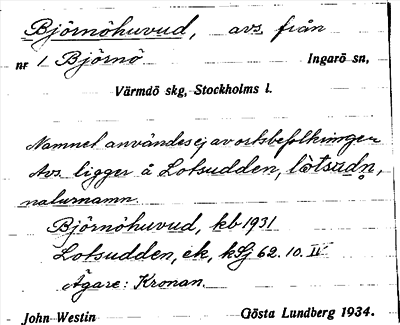 Björnöhuvud, avs. från
nr 1 Björnö Ingarö sn,
Värmdö skg, Stockholms l.
Namnet användes ej av ortsbefolkningen
Avs. ligger å Lotsudden, lòtsudn,
naturnamn.
Björnöhuvud, kb 1931
Lotsudden, ek, kSj 62. 10. IV
Ägare: Kronan.
John Westin Gösta Lundberg 1934.